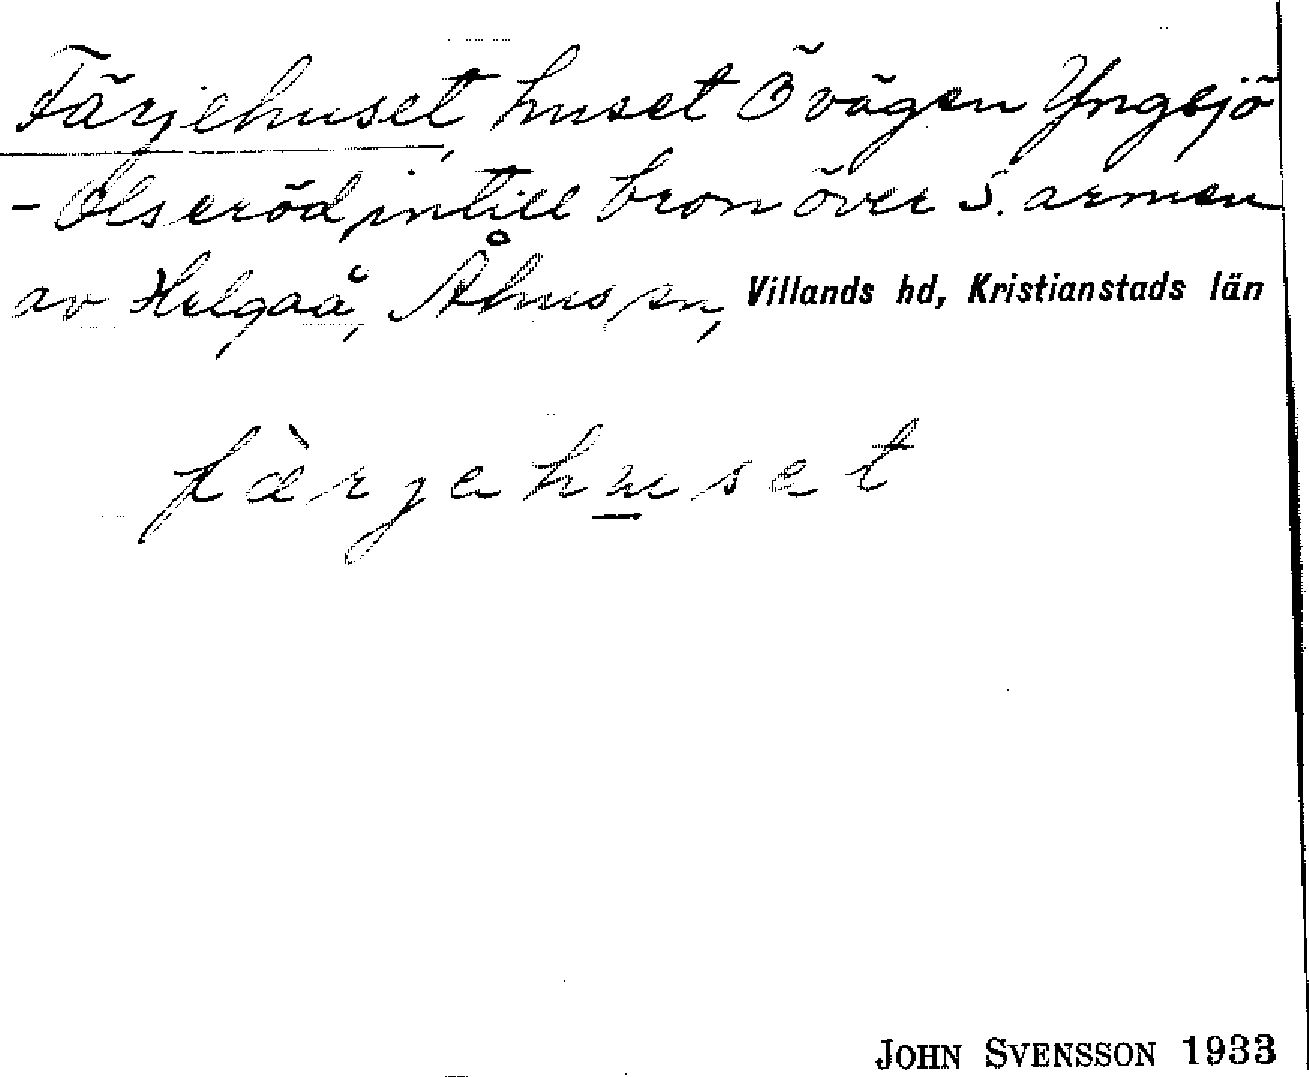 Färjehuset, huset Ö vägen Yngsjö
- Olseröd, intill bron över S. armen
av Helgaå, Åhus sn, Villands hd, Kristianstads län
fàrjehuset
JOHN SVENSSON 1933